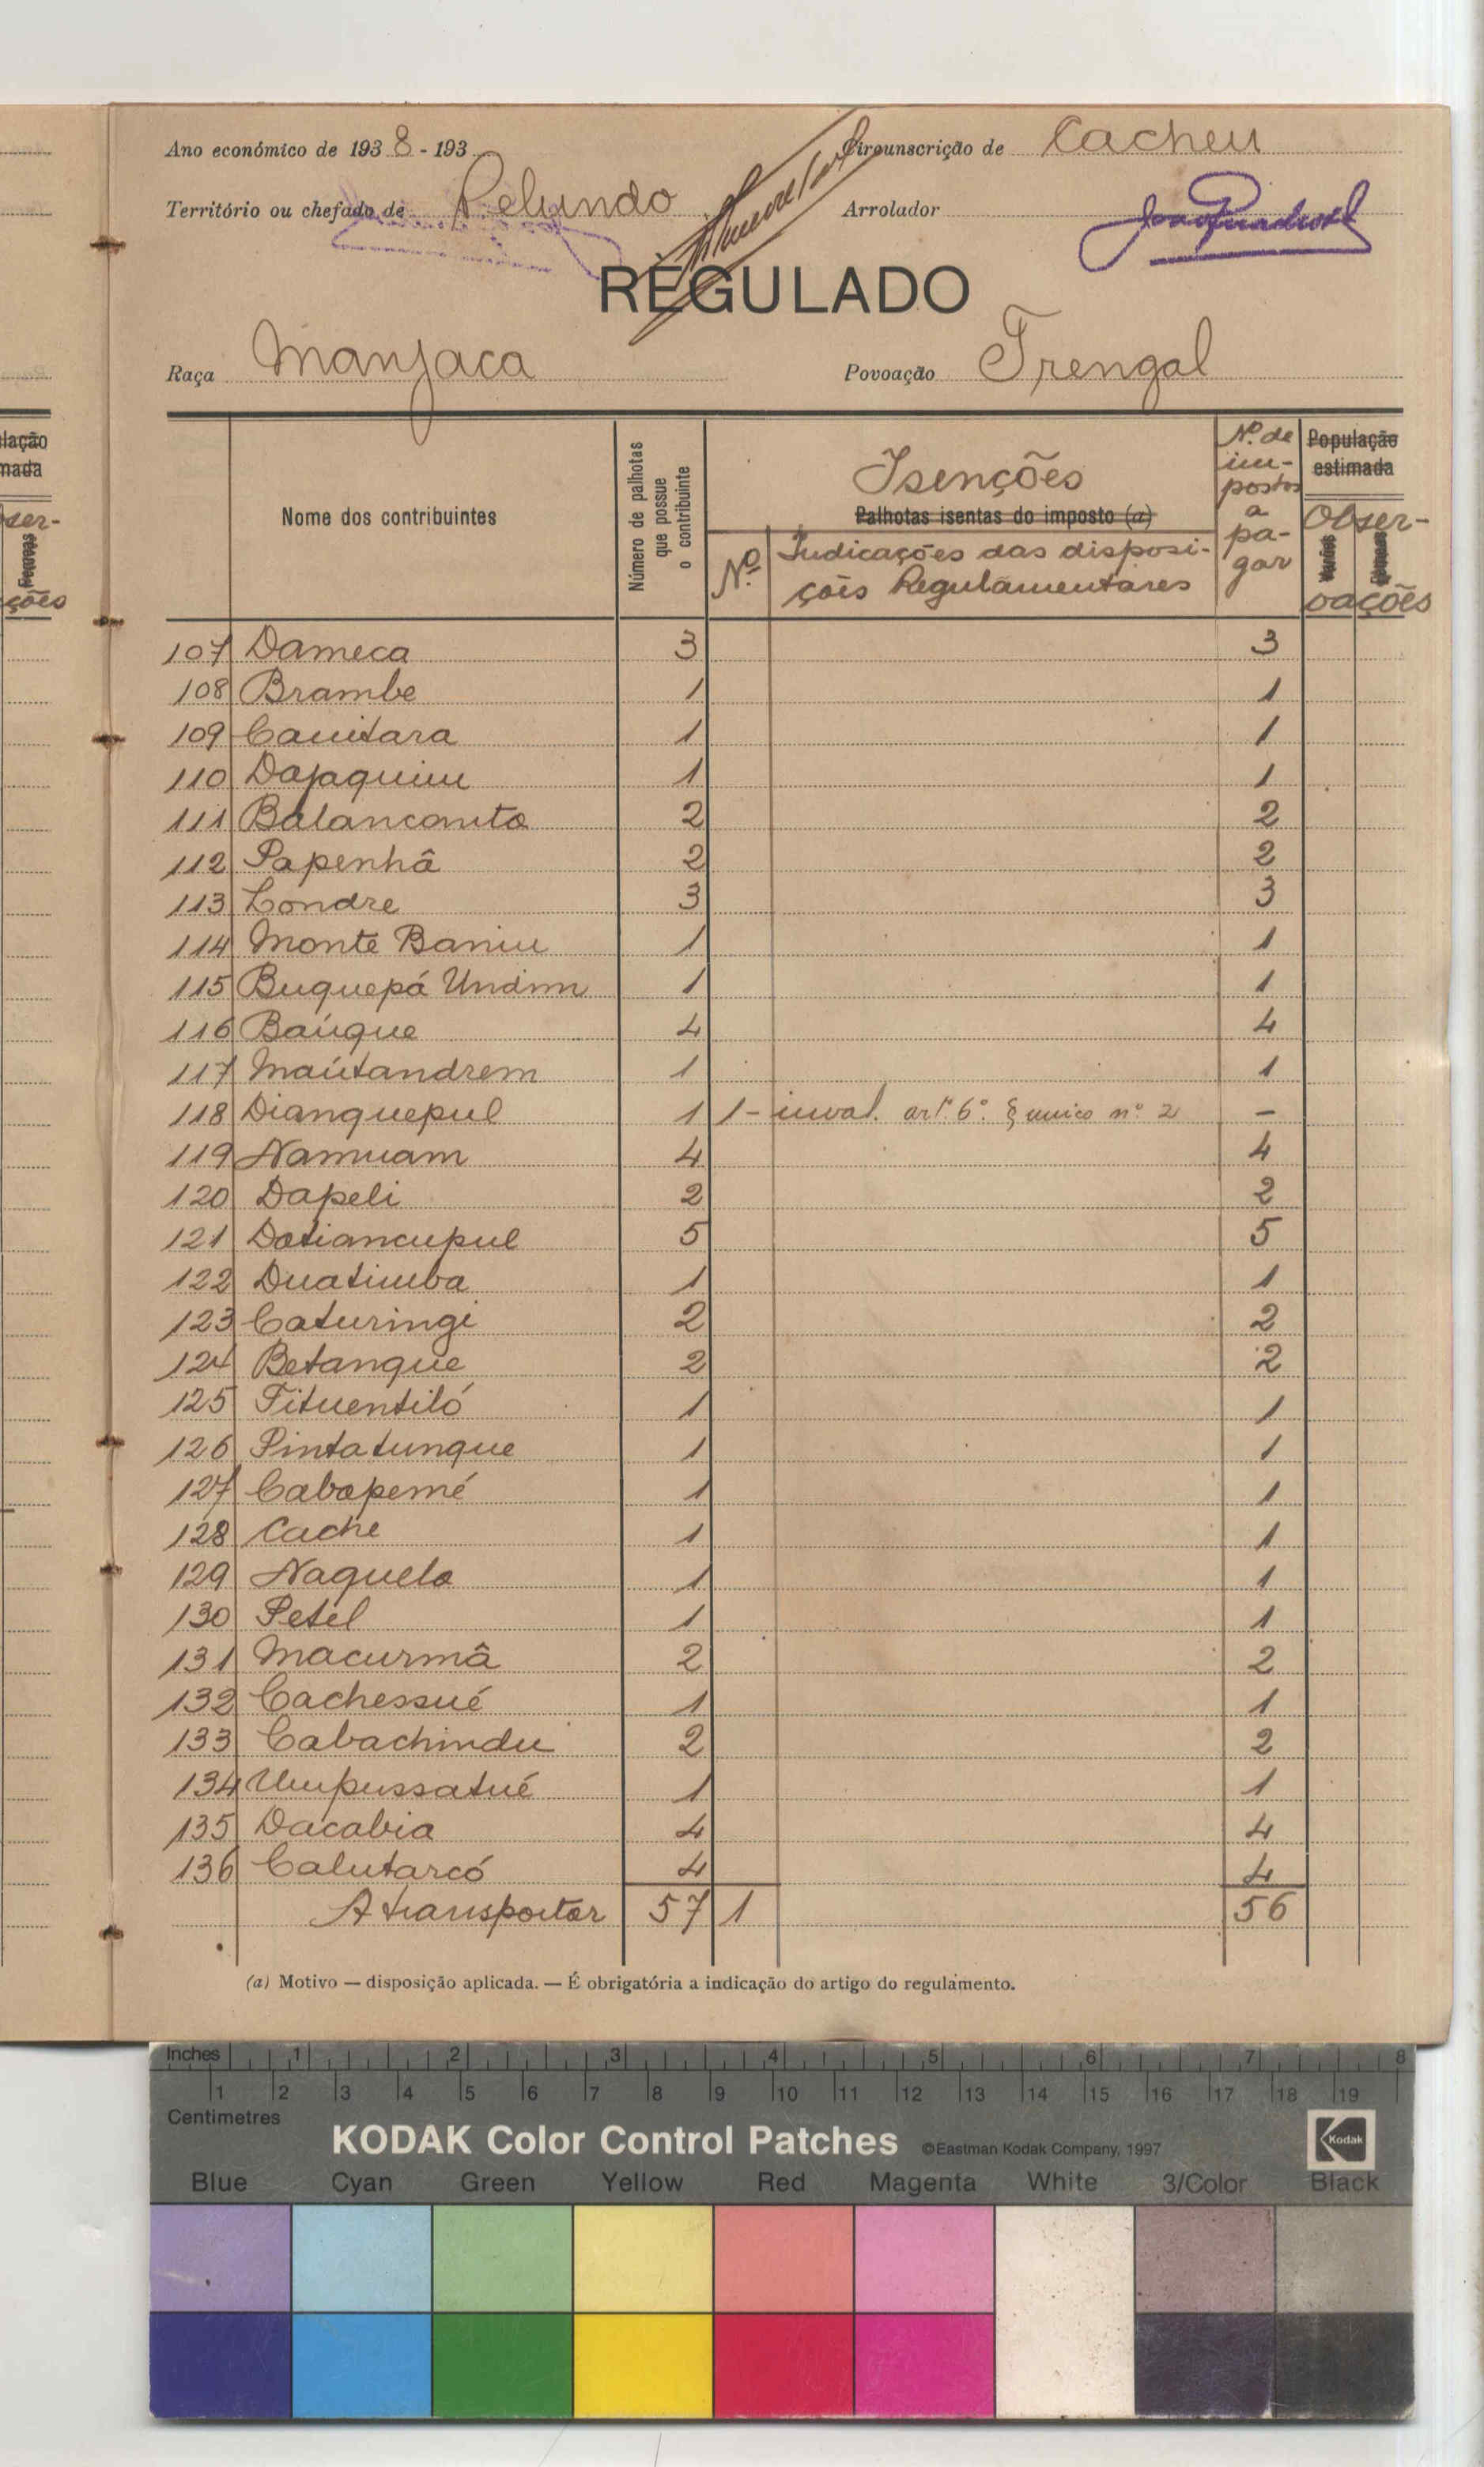 Ano económico de 1938-193 Circunscrição de Cacheu
Território ou chefado de Pelundo Arrolador
REGULADO
Raça Manjaca Povoação Trengal
lação
mada
ser-
Femeas
ções
Nome dos contribuintes
Número de palhotas
que possue
o contribuinte
Isenções
Palhotas isentas do imposto (a)
Nº
Indicações das disposi-
ções Regulamentares
Nº de
im-
postos
a
pa-
gar
População
estimada
Obser-
vações
107 Dameca 3 3
108 Brambe 1 1
109 Cauitara 1 1
110 Dajaquim 1 1
111 Balancanta 2 2
112 Papenhâ 2 2
113 Londre 3 3
114 Monte Baniu 1 1
115 Buquepá Undim 1 1
116 Baúque 4 4
117 Maútandrem 1 1
118 Dianquepul 1 1- inval. artº 6º. § unico nº 2 -
119 Namuam 4 4
120 Dapeli 2 2
121 Datiancupul 5 5
122 Duatimba 1 1
123 Caturingi 2 2
124 Betanque 2 2
125 Fituentiló 1 1
126 Pintatunque 1 1
127 Cabapemé 1 1
128 Cache 1 1
129 Naquela 1 1
130 Petel 1 1
131 Macurmâ 2 2
132 Cachessué 1 1
133 Cabachindu 2 2
134 Umpussatué 1 1
135 Dacabia 4 4
136 Calutarcó 4 4
A transportar 57 1 56
(a) Motivo — disposição aplicada. — É obrigatória a indicação do artigo do regulamento.
Inches 1 2 3 4 5 6 7 8
1 2 3 4 5 6 7 8 9 10 11 12 13 14 15 16 17 18 19
Centimetres
KODAK Color Control Patches ©Eastman Kodak Company, 1997 Kodak
Blue Cyan Green Yellow Red Magenta White 3/Color Black